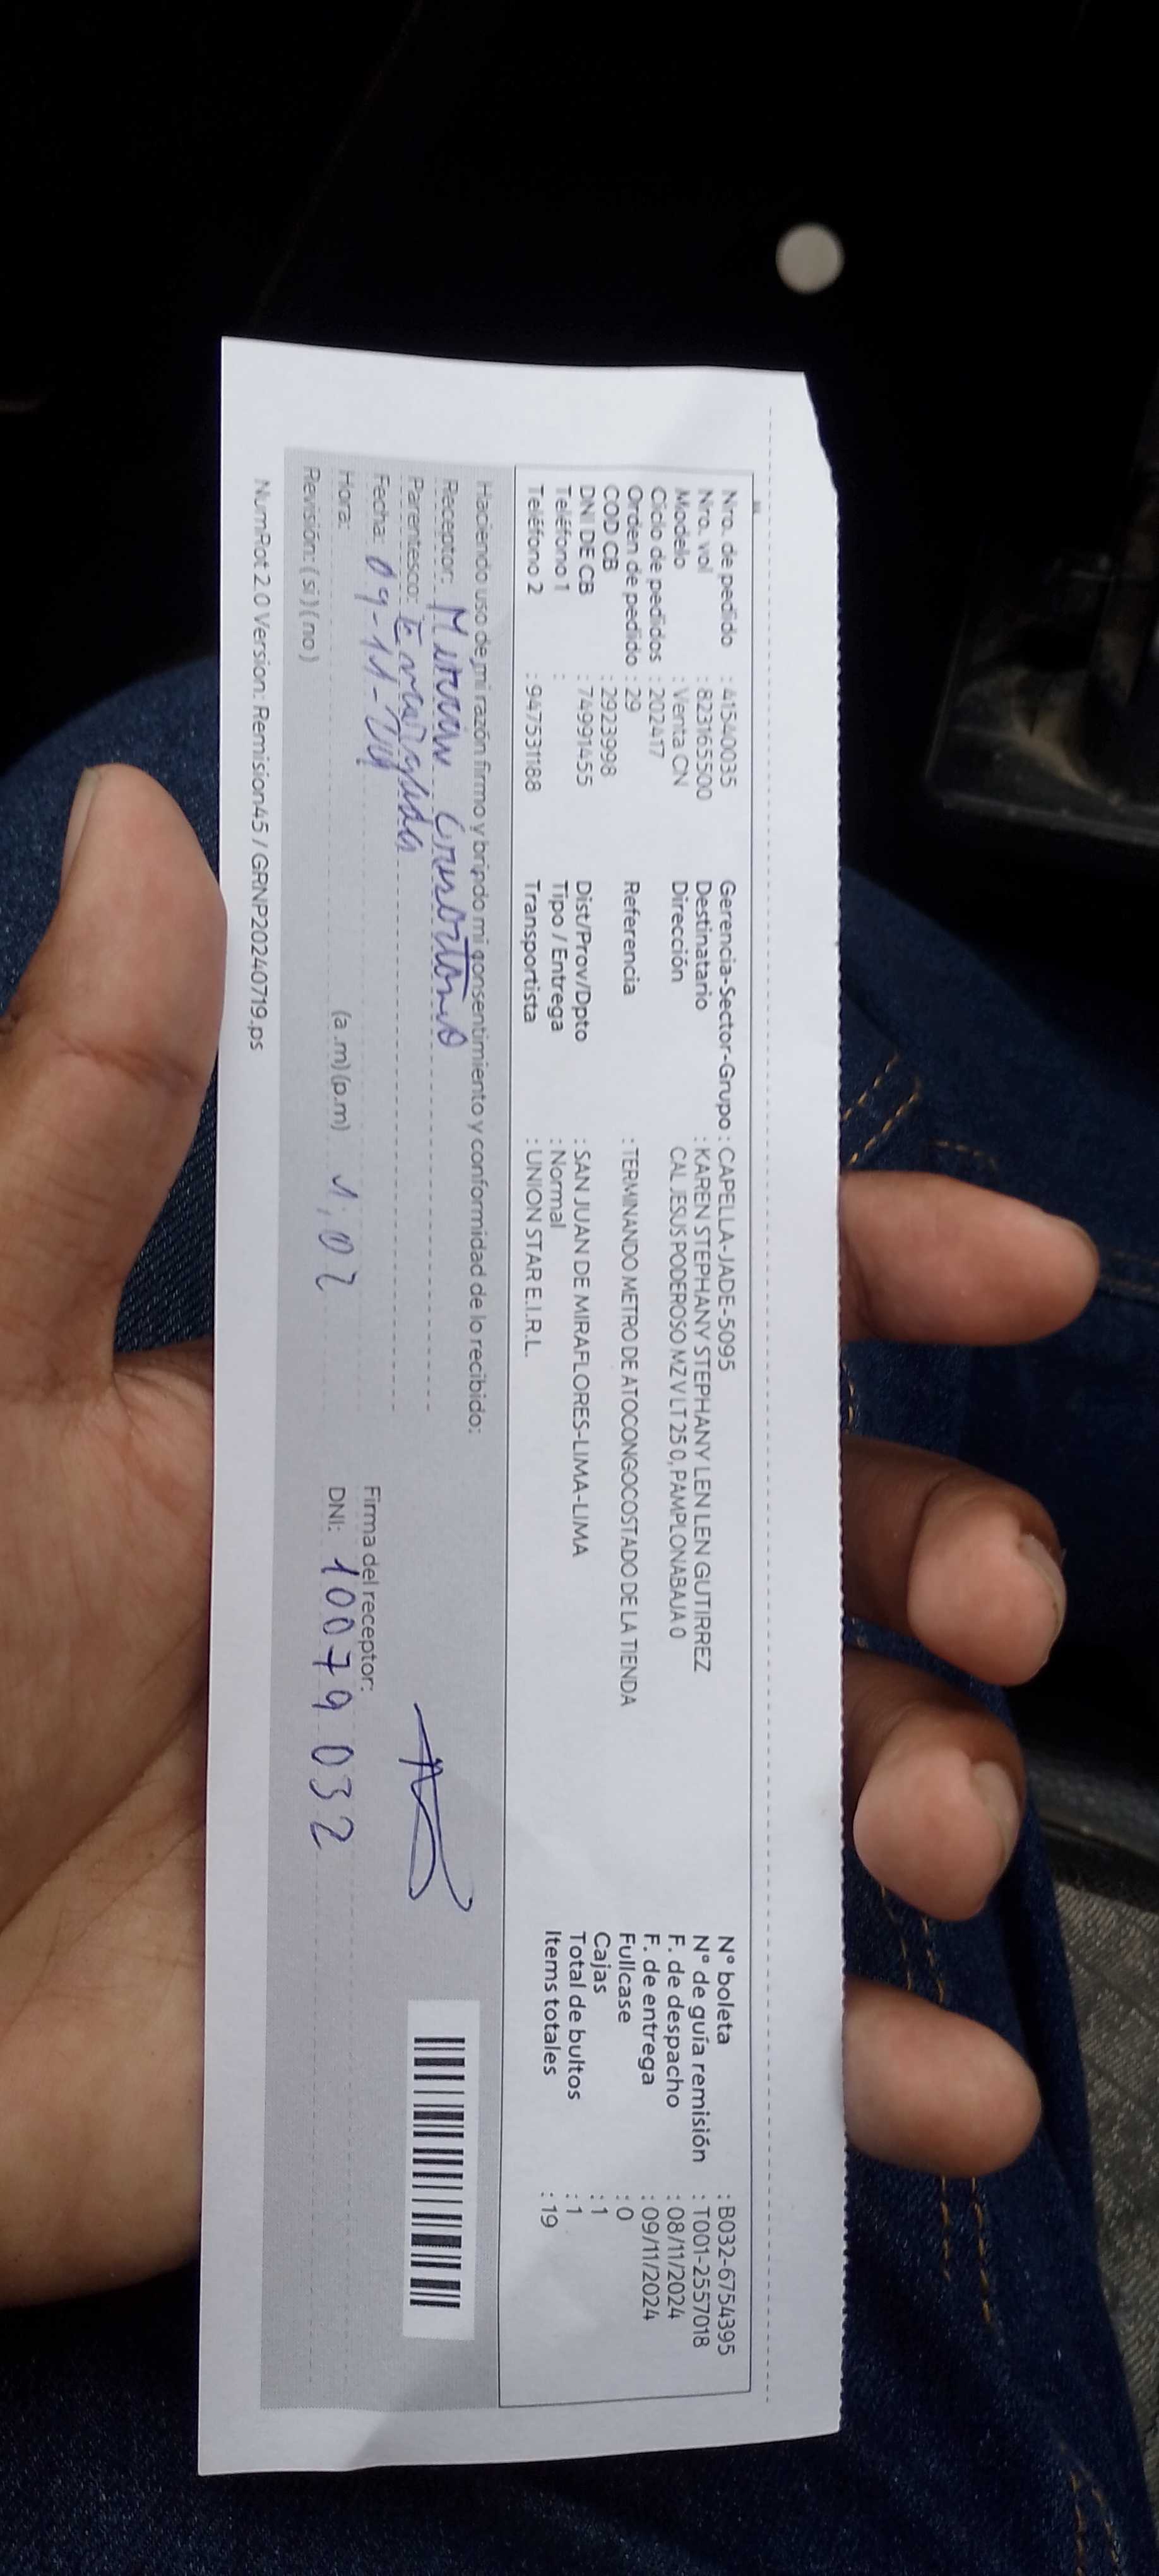 Nro. de pedido : 41540035 Gerencia-Sector-Grupo : CAPELLA-JADE-5095 N° boleta : B032-6754395
Nro. vol : 823165500 Destinatario : KAREN STEPHANY STEPHANY LEN LEN GUTIRREZ N° de guía remisión : T001-2557018
Modelo : Venta CN Dirección CAL JESUS PODEROSO MZ V LT 25 0, PAMPLONABAJA 0 F. de despacho : 08/11/2024
Ciclo de pedidos : 202417 F. de entrega : 09/11/2024
Orden de pedido : 29 Referencia : TERMINANDO METRO DE ATOCONGOCOSTADO DE LA TIENDA Fullcase : 0
COD CB : 2923998 Cajas : 1
DNI DE CB : 74991455 Dist/Prov/Dpto : SAN JUAN DE MIRAFLORES-LIMA-LIMA Total de bultos : 1
Teléfono 1 : Tipo / Entrega : Normal Items totales : 19
Teléfono 2 : 947531188 Transportista : UNION STAR E.I.R.L.
Haciendo uso de mi razón firmo y brindo mi consentimiento y conformidad de lo recibido:
Receptor:
Parentesco: Encargada
Fecha: 09-11-24 Firma del receptor:
Hora: (a.m) (p.m) 1:02 DNI: 10079032
Revisión: ( si ) ( no )
NumRot 2.0 Version: Remision45 / GRNP20240719.ps